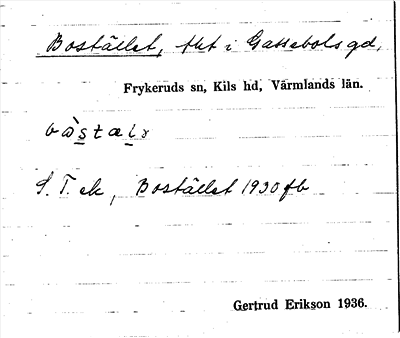 Bostället, tht i Gassebols gd,
Frykeruds sn, Kils hd, Värmlands län.
S. T. ek, Bostället 1930 fb
Gertrud Erikson 1936.